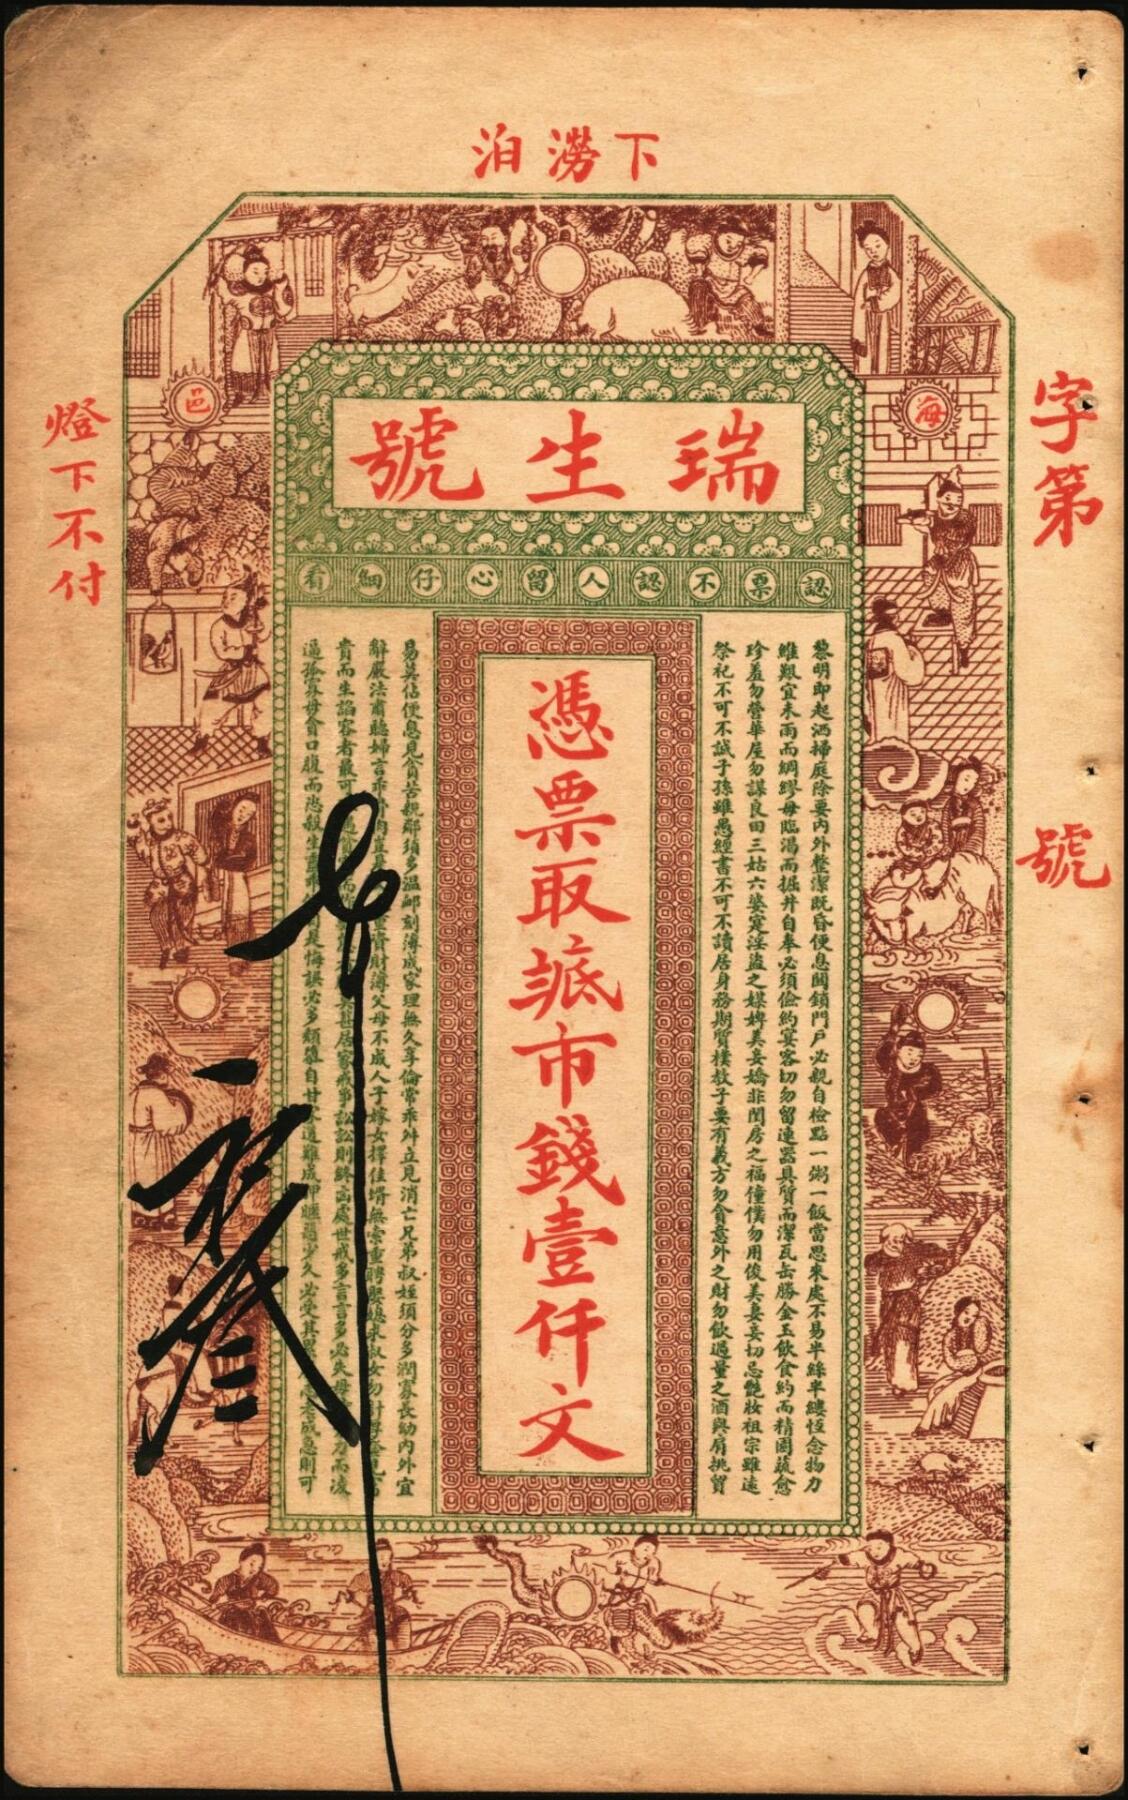 下澇泊
字第
號
燈下不付
海
邑
瑞生號
認票不認人留心仔細看
憑票取市錢壹仟文
黎明即起洒掃庭除要內外整潔既昏便息關鎖門戶必親自檢點一粥一飯當思來處不易半絲半縷恆念物力
維艱宜未雨而綢繆毋臨渴而掘井自奉必須儉約宴客切勿留連器具質而潔瓦缶勝金玉飲食約而精園蔬愈
珍羞勿營華屋勿謀良田三姑六婆寔淫盜之媒婢美妾嬌非閨房之福僮僕勿用俊美妻妾切忌艷妝祖宗雖遠
祭祀不可不誠子孫雖愚經書不可不讀居身務期質樸教子要有義方勿貪意外之財勿飲過量之酒與肩挑貿
易莫佔便息見貧苦親鄰須多溫卹刻薄成家理無久享倫常乖舛立見消亡兄弟叔姪須分多潤寡長幼內外宜
辭嚴法肅聽婦言乖骨肉豈是重資財薄父母不成人子嫁女擇佳壻無索重聘娶媳求淑女勿計厚奩見富
貴而生諂容者最可遇而甚居家戒爭訟訟則終凶處世戒多言言多必失毋力而凌
逼孤寡毋貪口腹而恣殺生是悔誤必多頹惰自甘家道難成狎暱惡少久必受其累老成急則可